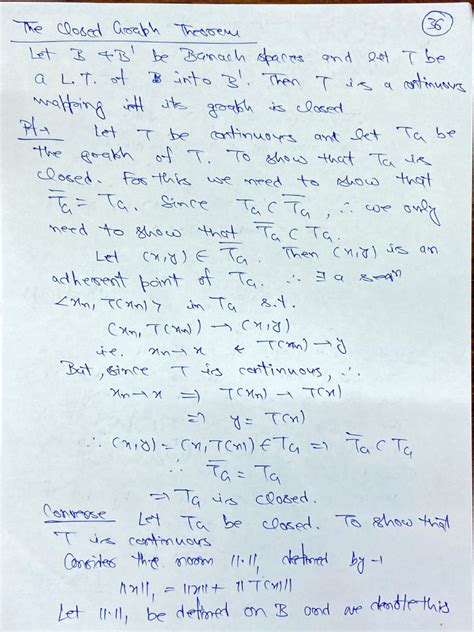 The Closed Graph Theorem
36
Let B & B' be Banach spaces and let T be
a L.T. of B into B'. Then T is a continuous
mapping iff its graph is closed
Pf→ Let T be continuous and let T_G be
the graph of T. To show that T_G is
closed. For this we need to show that
T̄_G = T_G. Since T_G ⊂ T̄_G, ∴ we only
need to show that T̄_G ⊂ T_G.
Let (x,y) ∈ T̄_G. Then (x,y) is an
adherent point of T_G. ∴ ∃ a seqn
<xn, T(xn)> in T_G s.t.
(xn, T(xn)) → (x,y)
i.e. xn→x & T(xn)→y
But, since T is continuous, ∴
xn→x ⟹ T(xn) → T(x)
⟹ y = T(x)
∴ (x,y) = (x,T(x)) ∈ T_G ⟹ T̄_G ⊂ T_G
∴ T̄_G = T_G
⟹ T_G is closed.
Converse Let T_G be closed. To show that
T is continuous
Consider the norm ||.||₁ defined by→
||x||₁ = ||x|| + ||T(x)||
Let ||.||₁ be defined on B and we denote this